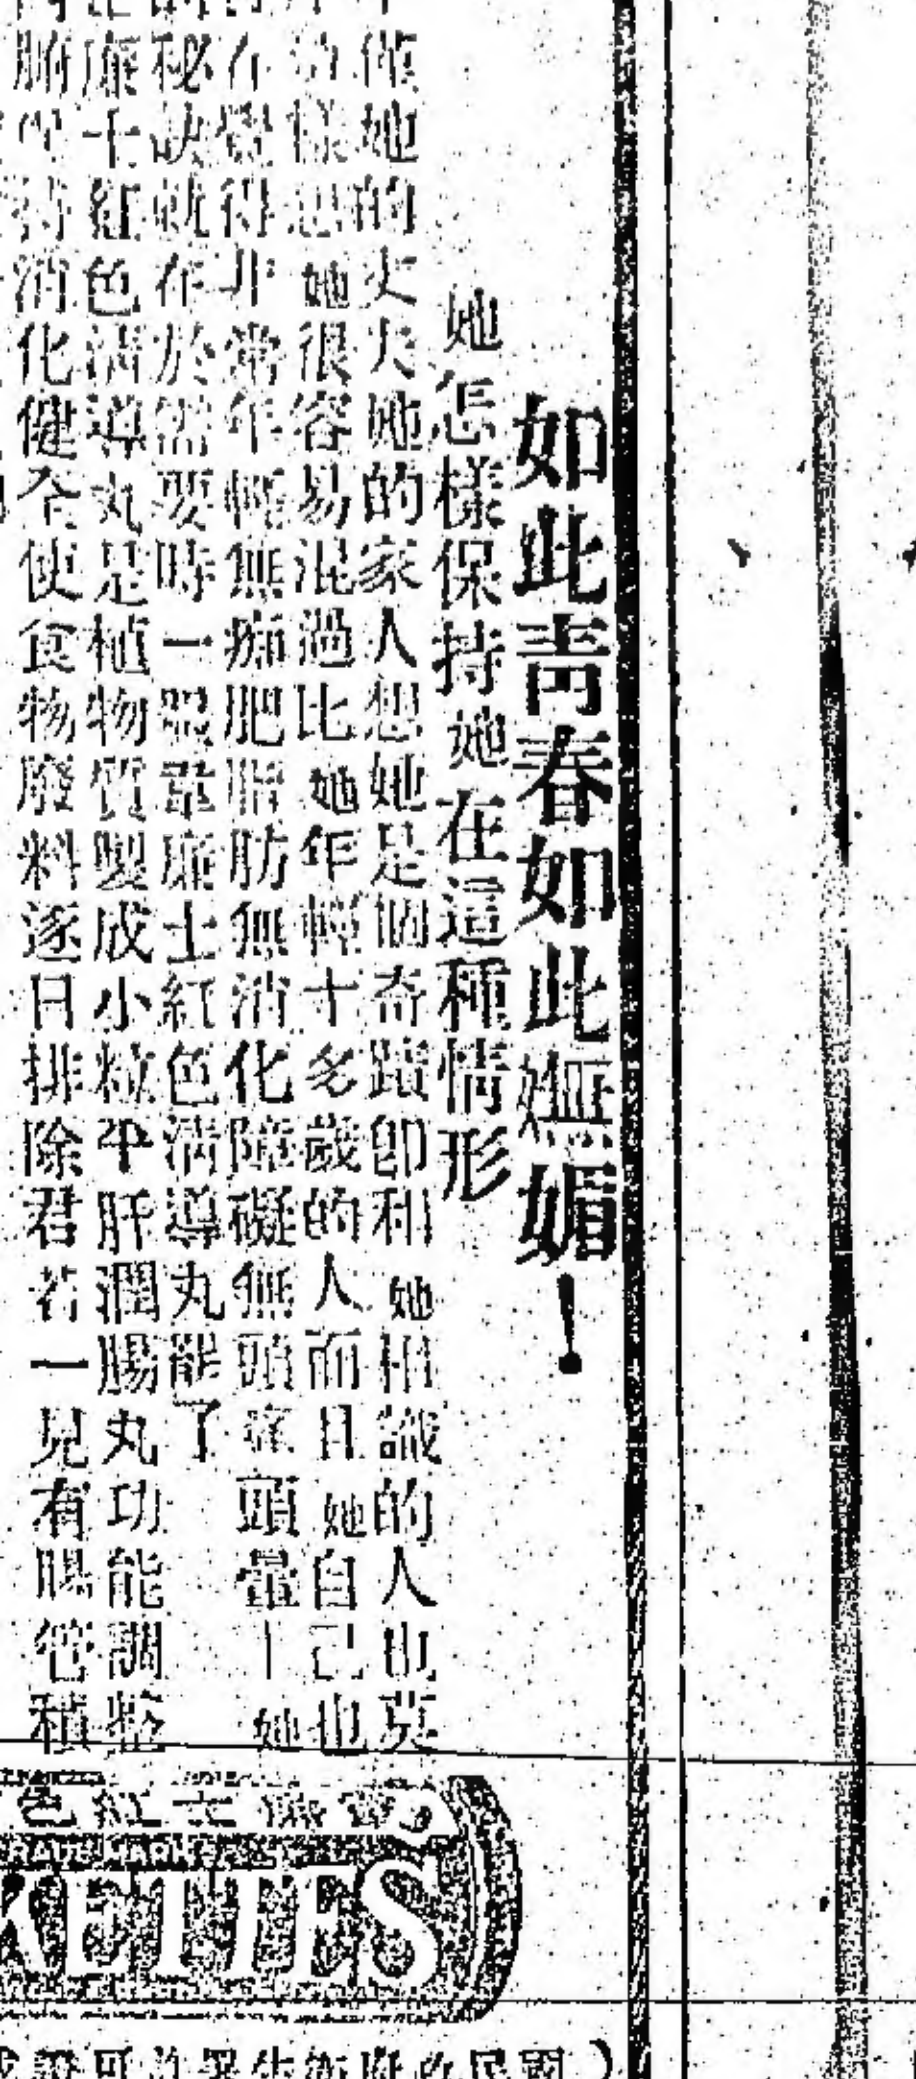 如此青春如此嫵媚！
她怎樣保持她在這種情形
僅她的丈夫她的家人想她是個奇蹟卽和她相識的人也莫
樣思她很容易混過比她年輕十多歲的人而且她自己也
在覺得非常年輕無痴肥脂肪無消化障礙無頭痛頭暈｜她
秘訣就在於需要時一服韋廉士紅色清導丸罷了
廉士紅色清導丸是植物質製成小粒平肝潤腸丸功能調整
腑保持消化健全使食物廢料逐日排除君若一見有腸管積
色紅士廉韋
TRADE MARK
KETTES
可許署生衛府政民國）